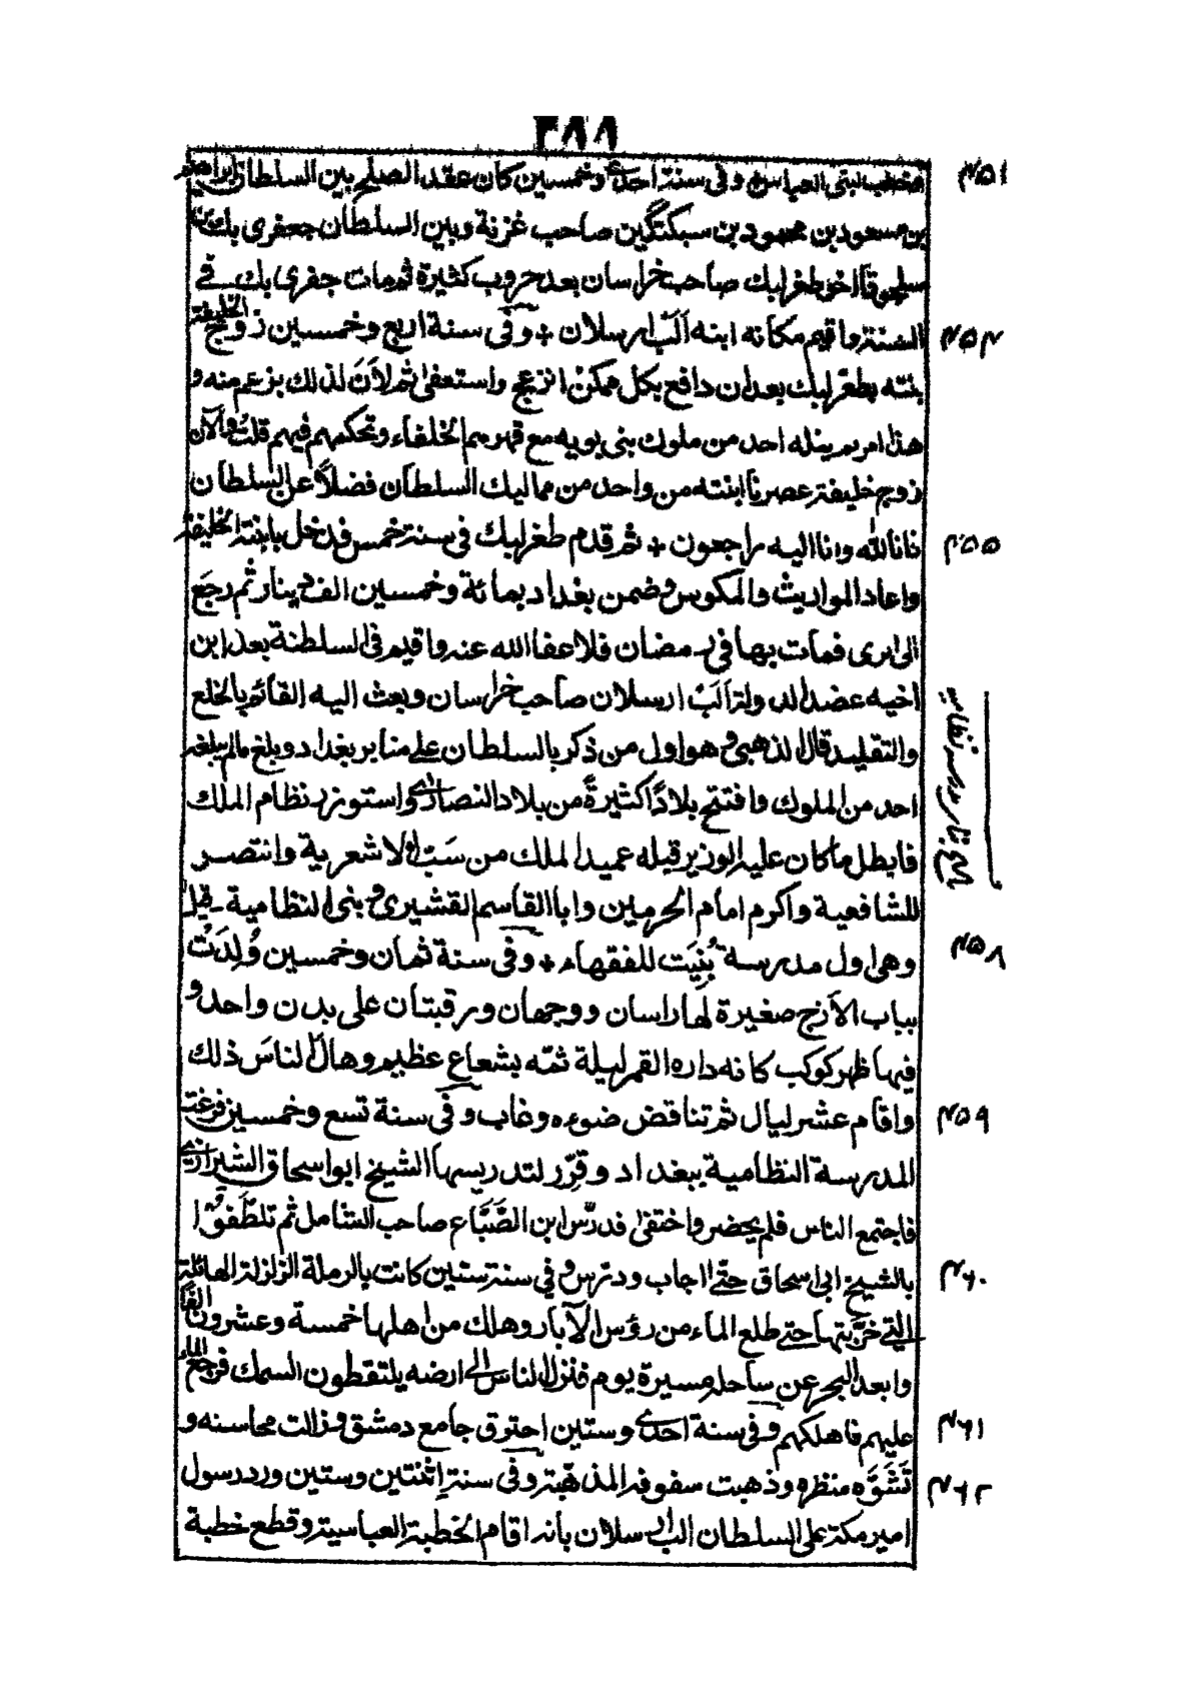 ٢٨٨
فخطب لبنى العباس وفى سنة احدى وخمسين كان عقد الصلح بين السلطان ابراهيم
بن مسعود بن محمود بن سبكتگين صاحب غزنة وبين السلطان جعفرى بك بن
سلجوق اخو طغرلبك صاحب خراسان بعد حروب كثيرة ثم مات جفرى بك فى
السنة واقيم مكانه ابنه اَلَب ارسلان + وفى سنة اربع وخمسين زوّج الخليفة
بنته بطغرلبك بعد ان دافع بكل ممكن وانزعج واستعفى ثم لَاَنَ لذلك بزعم منه و
هذا امر لم ينله احد من ملوك بنى بويه مع قهرهم الخلفاء وتحكمهم فيهم قلت والآن
زوج خليفة عصرنا ابنته من واحد من مماليك السلطان فضلاً عن السلطان
فانا لله وانا اليه راجعون + ثم قدم طغرلبك فى سنة خمس فدخل بابنة الخليفة
واعاد المواريث والمكوس وضمن بغداد بمائة وخمسين الف دينار ثم رجَع
الى الرى فمات بها فى رمضان فلا عفا الله عنه واقيم فى السلطنة بعد ابن
اخيه عضد الدولة اَلَبْ ارسلان صاحب خراسان وبعث اليه القائم بالخلع
والتقليد قال الذهبى وهو اول من ذكر بالسلطان على منابر بغداد وبلغ مالم يبلغه
احد من الملوك وافتتح بلادًا كثيرةً من بلاد النصارى واستوزر نظام الملك
فابطل ما كان عليه الوزير قبله عميد الملك من سَبّ الاشعرية وانتصر
للشافعية واكرم امام الحرمين وابا القاسم القشيرى وبنى النظامية قيل
وهى اول مدرسة بُنِيَت للفقهاء + وفى سنة ثمان وخمسين وُلِدَتْ
بباب الاَزَج صغيرة لها راسان ووجهان ورقبتان على بدن واحد و
فيها ظهر كوكب كانه داره القمر ليلة تمّه بشعاع عظيم وهال الناسَ ذلك
واقام عشر ليال ثم تناقص ضوءه وغاب وفى سنة تسع وخمسين فرغت
المدرسة النظامية ببغداد وقرّر لتدريسها الشيخ ابو اسحاق الشيرازى
فاجتمع الناس فلم يحضر واختفى فدرّس ابن الصَّبَّاغ صاحب الشامل ثم تلطّفوا
بالشيخ ابى اسحاق حتى اجاب ودرّس وفى سنة ستين كانت بالرملة الزلزلة الهائلة
التى خرّبتها حتى طلع الماء من رؤس الآبار وهلك من اهلها خمسة وعشرون الفًا
وابعد البحر عن ساحله مسيرة يوم فنزل الناس الى ارضه يلتقطون السمك فرجع الماء
عليهم فاهلكهم وفى سنة احدى وستين احترق جامع دمشق وزالت محاسنه و
تَشَوَّه منظره وذهبت سقوفه المذهّبة وفى سنة اِثنتين وستين ورد رسول
امير مكة على السلطان الب ارسلان بانه اقام الخطبة العباسية وقطع خطبة
۴۵۱
۴۵۴
۴۵۵
۴۵۸
۴۵۹
۴۶۰
۴۶۱
۴۶۲